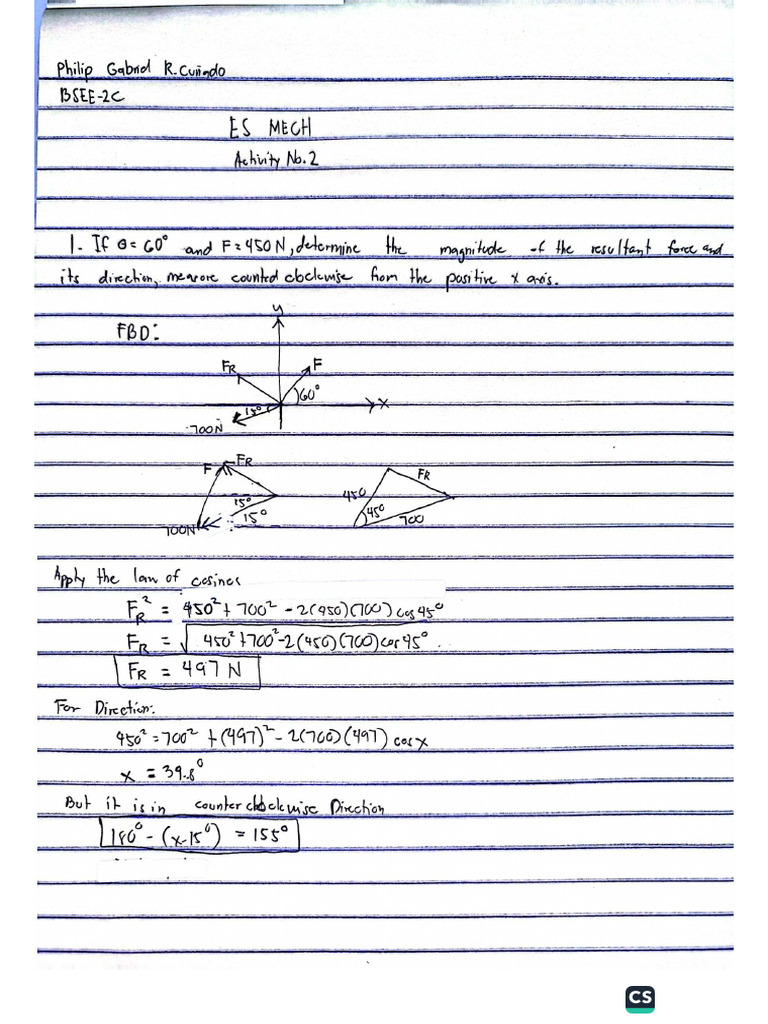 Philip Gabriel R. Cuñado
BSEE-2C
ES MECH
Activity No. 2
1. If θ = 60° and F = 450 N, determine the magnitude of the resultant force and
its direction, measure counted clockwise from the positive x axis.
FBD:
y
FR F
60°
x
15°
700N
F FR
15°
15°
700N
FR
450
45°
700
Apply the law of cosines
FR² = 450² + 700² - 2(450)(700) cos 45°
FR = √450² + 700² - 2(450)(700) cos 45°
FR = 497 N
For Direction:
450² = 700² + (497)² - 2(700)(497) cos x
x = 39.8°
But it is in counter clockwise Direction
180° - (x-15°) = 155°
CS